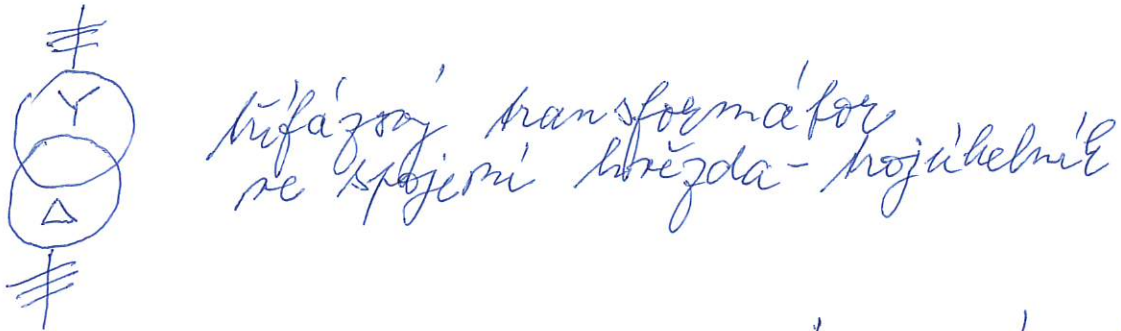 Y
třífázový transformátor
ve spojení hvězda - trojúhelník
Δ